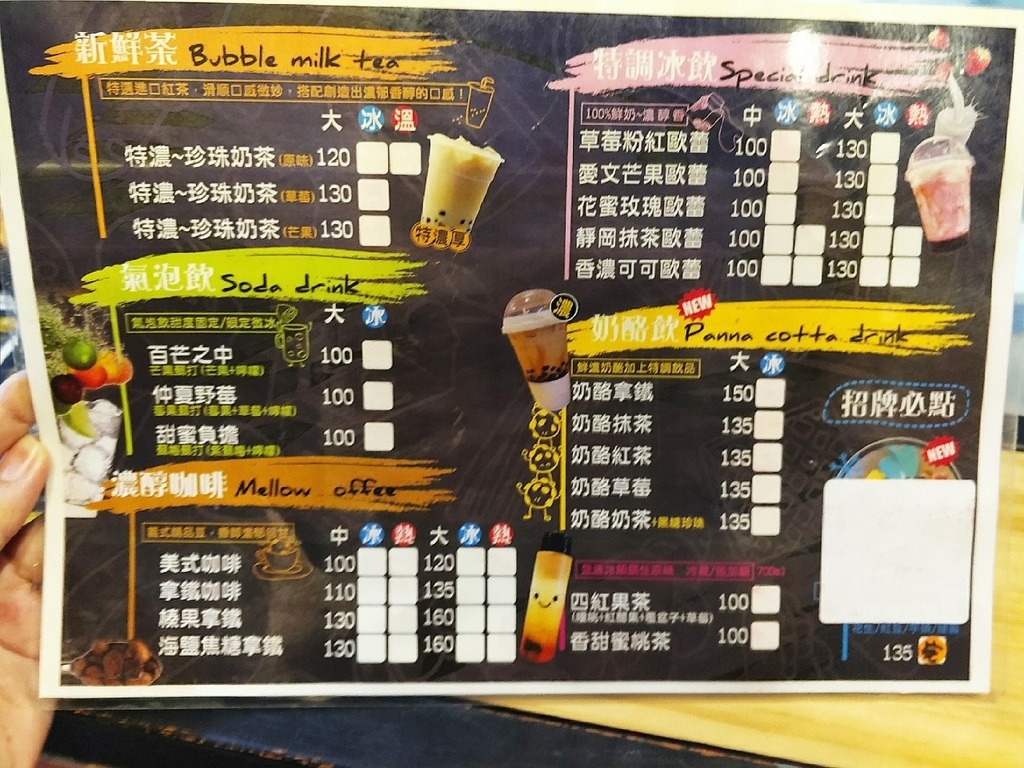 新鮮茶 Bubble milk tea
特選進口紅茶，滑順口感微妙，搭配創造出濃郁香醇的口感！
大 冰 溫
特濃~珍珠奶茶(原味) 120
特濃~珍珠奶茶(草莓) 130
特濃~珍珠奶茶(芒果) 130
特濃厚
氣泡飲 Soda drink
氣泡飲甜度固定/限定微冰
大 冰
百芒之中 100
芒果氣打(芒果+檸檬)
仲夏野莓 100
莓果氣打(莓果+草莓+檸檬)
甜蜜負擔 100
濃醇咖啡 Mellow offee
中 冰 熱 大 冰 熱
美式咖啡 100 120
拿鐵咖啡 110 135
榛果拿鐵 130 160
海鹽焦糖拿鐵 130 160
特調冰飲 Special drink
100%鮮奶~濃醇香
中 冰 熱 大 冰 熱
草莓粉紅歐蕾 100 130
愛文芒果歐蕾 100 130
花蜜玫瑰歐蕾 100 130
靜岡抹茶歐蕾 100 130
香濃可可歐蕾 100 130
濃
NEW
奶酪飲 Panna cotta drink
鮮濃奶酪加上特調飲品
大 冰
奶酪拿鐵 150
奶酪抹茶 135
奶酪紅茶 135
奶酪草莓 135
奶酪奶茶+黑糖珍珠 135
四紅果茶 100
香甜蜜桃茶 100
招牌必點
NEW
135